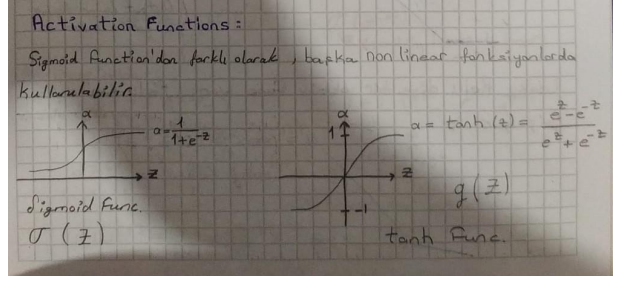 Activation Functions:
Sigmoid function'dan farklı olarak, başka non linear fonksiyonlarda
kullanılabilir.
a
a = 1 / 1+e^-z
z
Sigmoid Func.
σ(z)
a
1
-1
z
a = tanh(z) = e^z - e^-z / e^z + e^-z
g(z)
tanh Func.